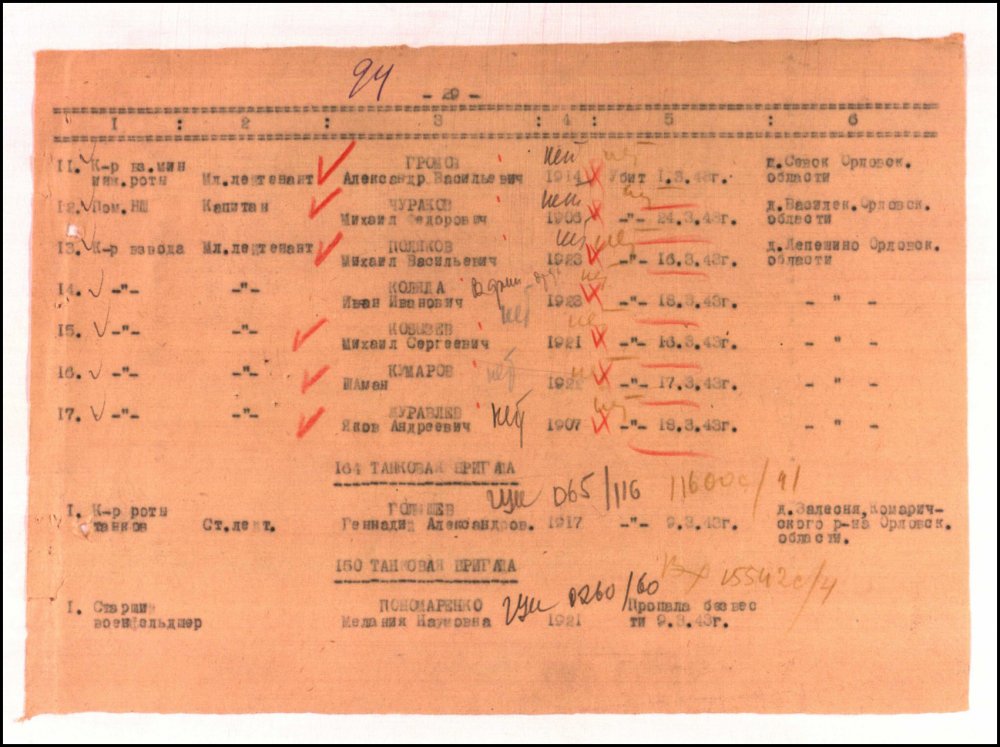 94
- 29 -
1 : 2 : 3 : 4 : 5 : 6
11. К-р вз.мин инж.роты Мл.лейтенант ГРОМОВ Александр Васильевич нет 1914 нет Убит 1.3.43г. д.Севск Орловск. области
12. Пом.НШ Капитан ЧУРАКОВ Михаил Федорович нет 1906 -"- 24.3.43г. д.Василек.Орловск. области
13. К-р взвода Мл.лейтенант ПОЛЯКОВ Михаил Васильевич 1923 нет -"- 16.3.43г. д.Лепешино Орловск. области
14. -"- -"- Иван Иванович нет 1923 нет -"- 18.3.43г. - " -
15. -"- -"- Михаил Сергеевич 1921 нет -"- 16.3.43г. - " -
16. -"- -"- КУМАРОВ Шаман нет -"- 17.3.43г. - " -
17. -"- -"- ЖУРАВЛЕВ Яков Андреевич нет 1907 нет -"- 18.3.43г. - " -
164 ТАНКОВАЯ БРИГАДА
065/116 11600с/91
1. К-р роты танков Ст.лейт. Геннадий Александров. 1917 -"- 9.3.43г. д.Залесня,Комарич- ского р-на Орловск. области.
160 ТАНКОВАЯ БРИГАДА
Вх 15542с/4
1. Старший военфельдшер ПОНОМАРЕНКО Мелания Наумовна 0260/60 1921 Пропала безвес ти 9.3.43г.